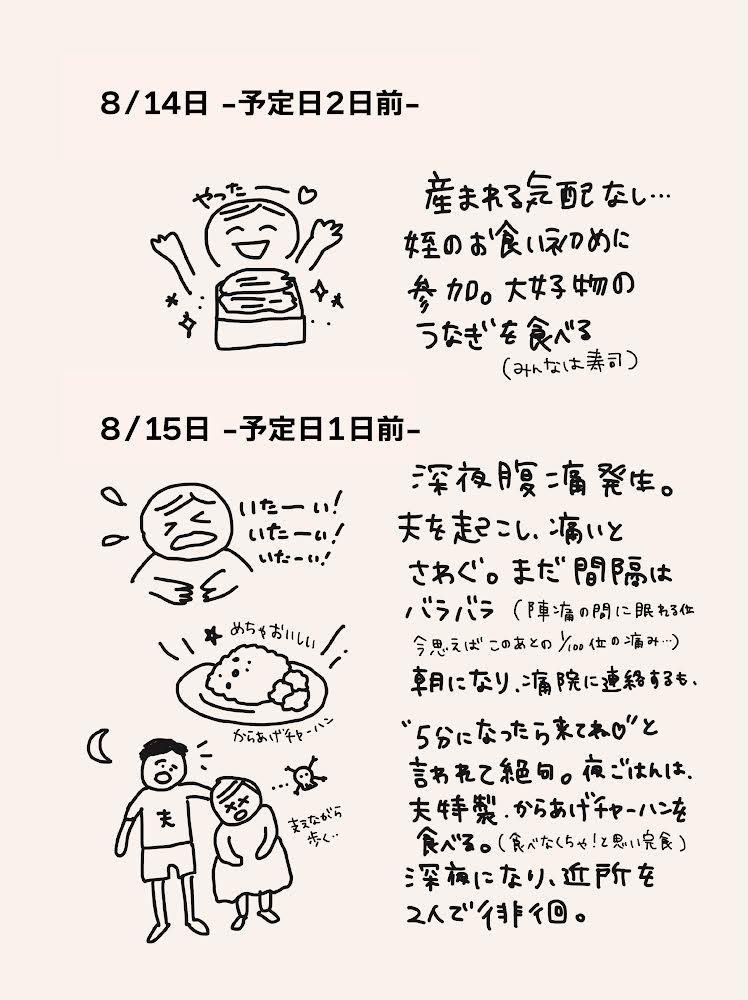 8/14日 -予定日2日前-
やったー♡
産まれる気配なし…
姪のお食い初めに
参加。大好物の
うなぎを食べる
(みんなは寿司)
8/15日 -予定日1日前-
いたーい!
いたーい!
いたーい!
深夜腹痛発生。
夫を起こし、痛いと
さわぐ。まだ間隔は
バラバラ (陣痛の間に眠れる位
今思えばこのあとの1/100位の痛み…)
朝になり、病院に連絡するも、
"5分になったら来てね♡"と
言われて絶句。夜ごはんは、
夫特製、からあげチャーハンを
食べる。(食べなくちゃ!と思い完食)
深夜になり、近所を
2人で徘徊。
★めちゃおいしい
からあげチャーハン
夫
支えながら
歩く…